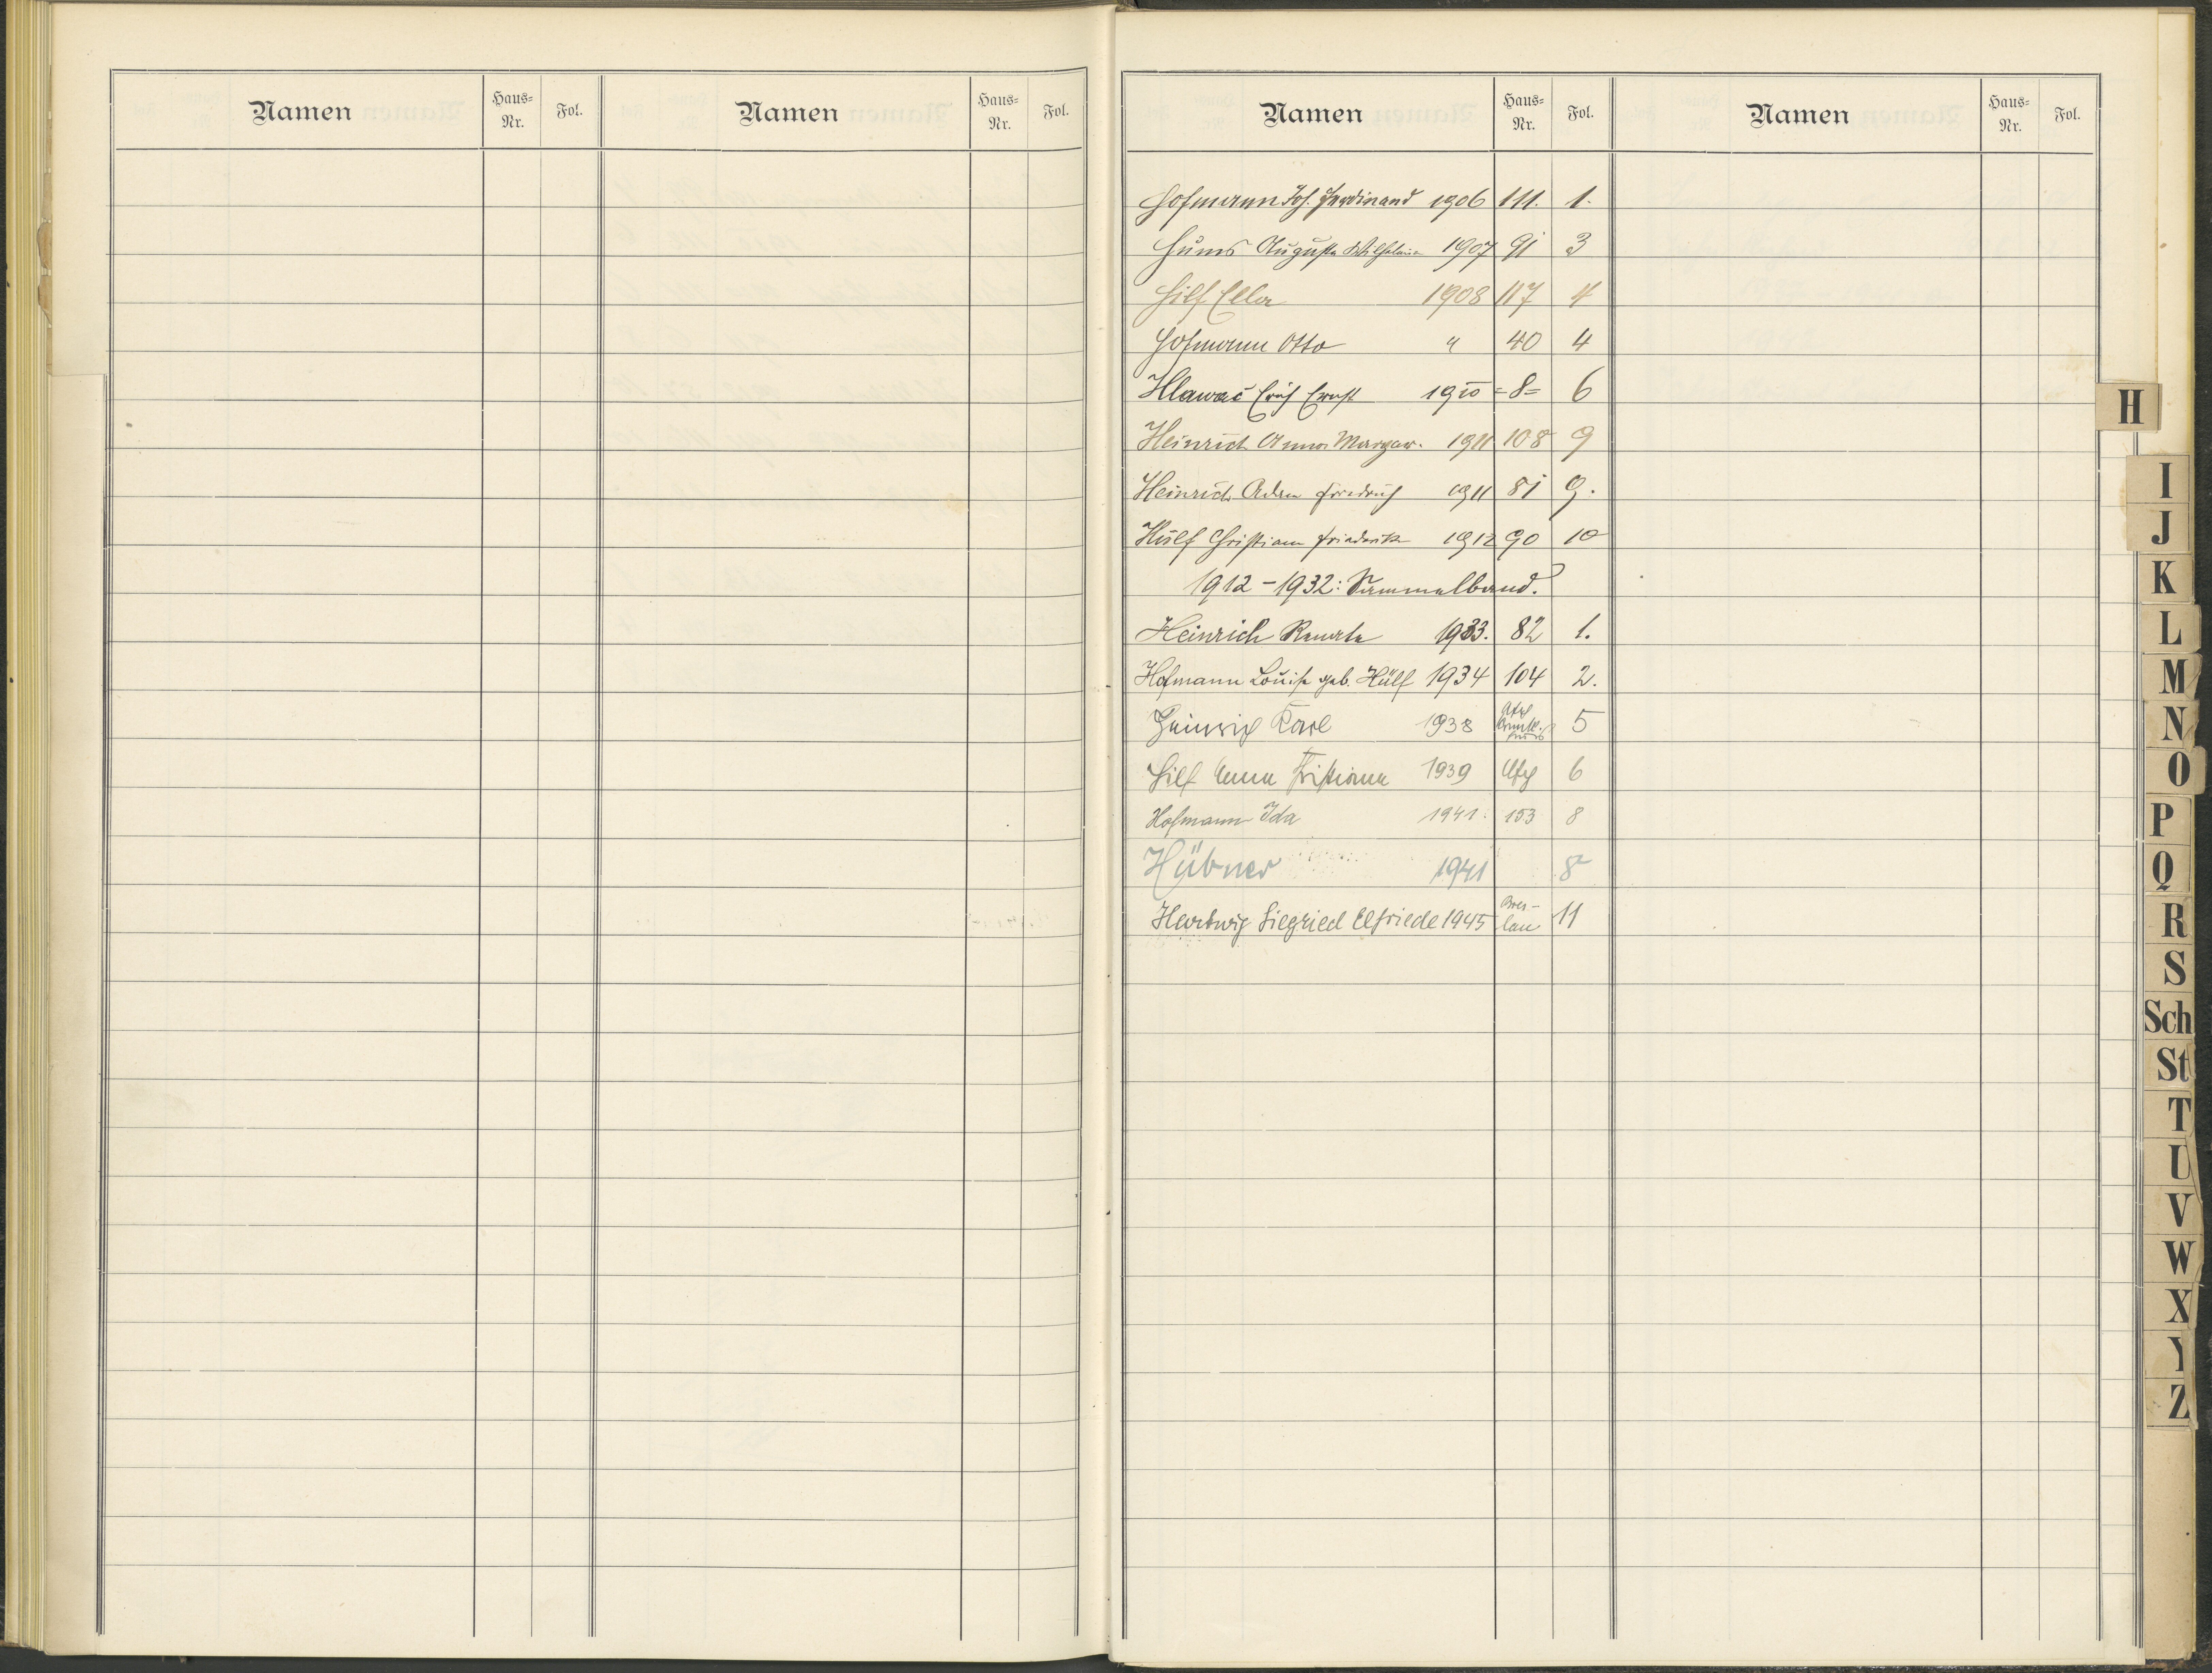 Namen Haus-Nr. Fol. Namen Haus-Nr. Fol.
Namen Haus-Nr. Fol. Namen Haus-Nr. Fol.
Hofmann Joh. Ferdinand 1906 111. 1.
Auguste Wilhelmine 1907 91 3
Hilf Ella 1908 117 4
Hofmann Otto " 40 4
Hlavač Erich Ernst 1910 =8= 6
Heinrich Anna Margar. 1911 108 9
Heinrich Adam Friedrich 1911 81 9.
Hülf Christiane Friederike 1912 90 10
1912-1932: Sammelband.
Heinrich Renate 1933. 82 1.
Hofmann Louise geb. Hülf 1934 104 2.
Heinrich Karl 1938 5
Hilf Anna Kristiana 1939 6
Hofmann Ida 1941. 153 8
Hübner 1941 8
Hartwig Siegried Elfriede 1945 Bres-lau 11
H
I
J
K
L
M
N
O
P
Q
R
S
Sch
St
T
U
V
W
X
Y
Z